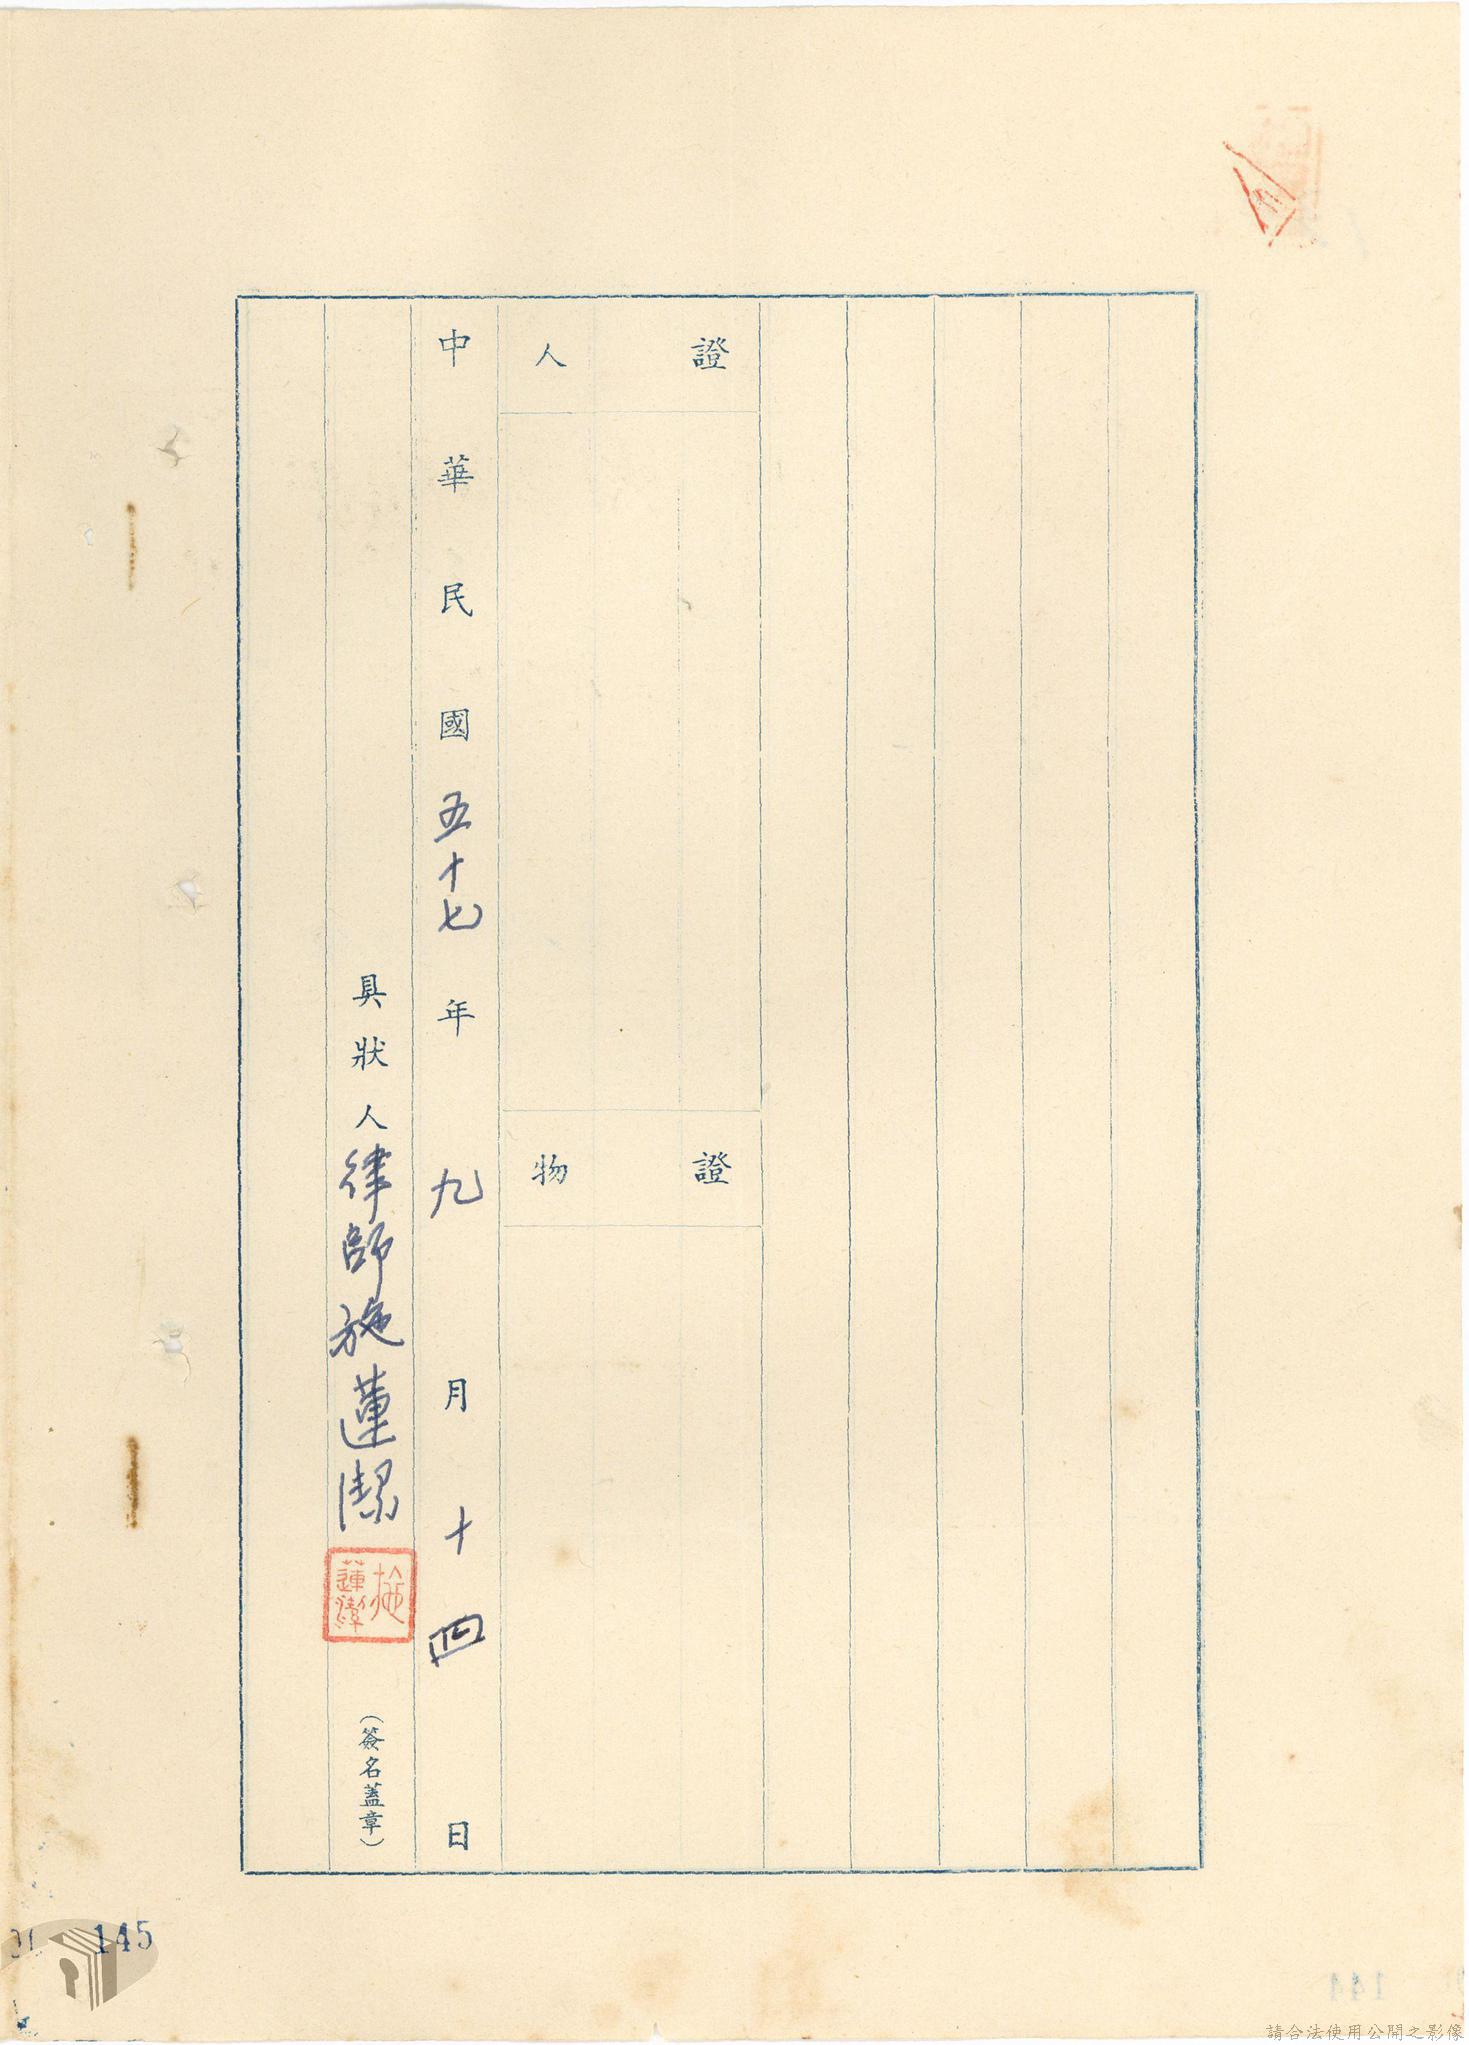 證人
證物
中華民國五十七年九月十四日
具狀人律師施蓮潔
施蓮潔
(簽名蓋章)
145
144
請合法使用公開之影像